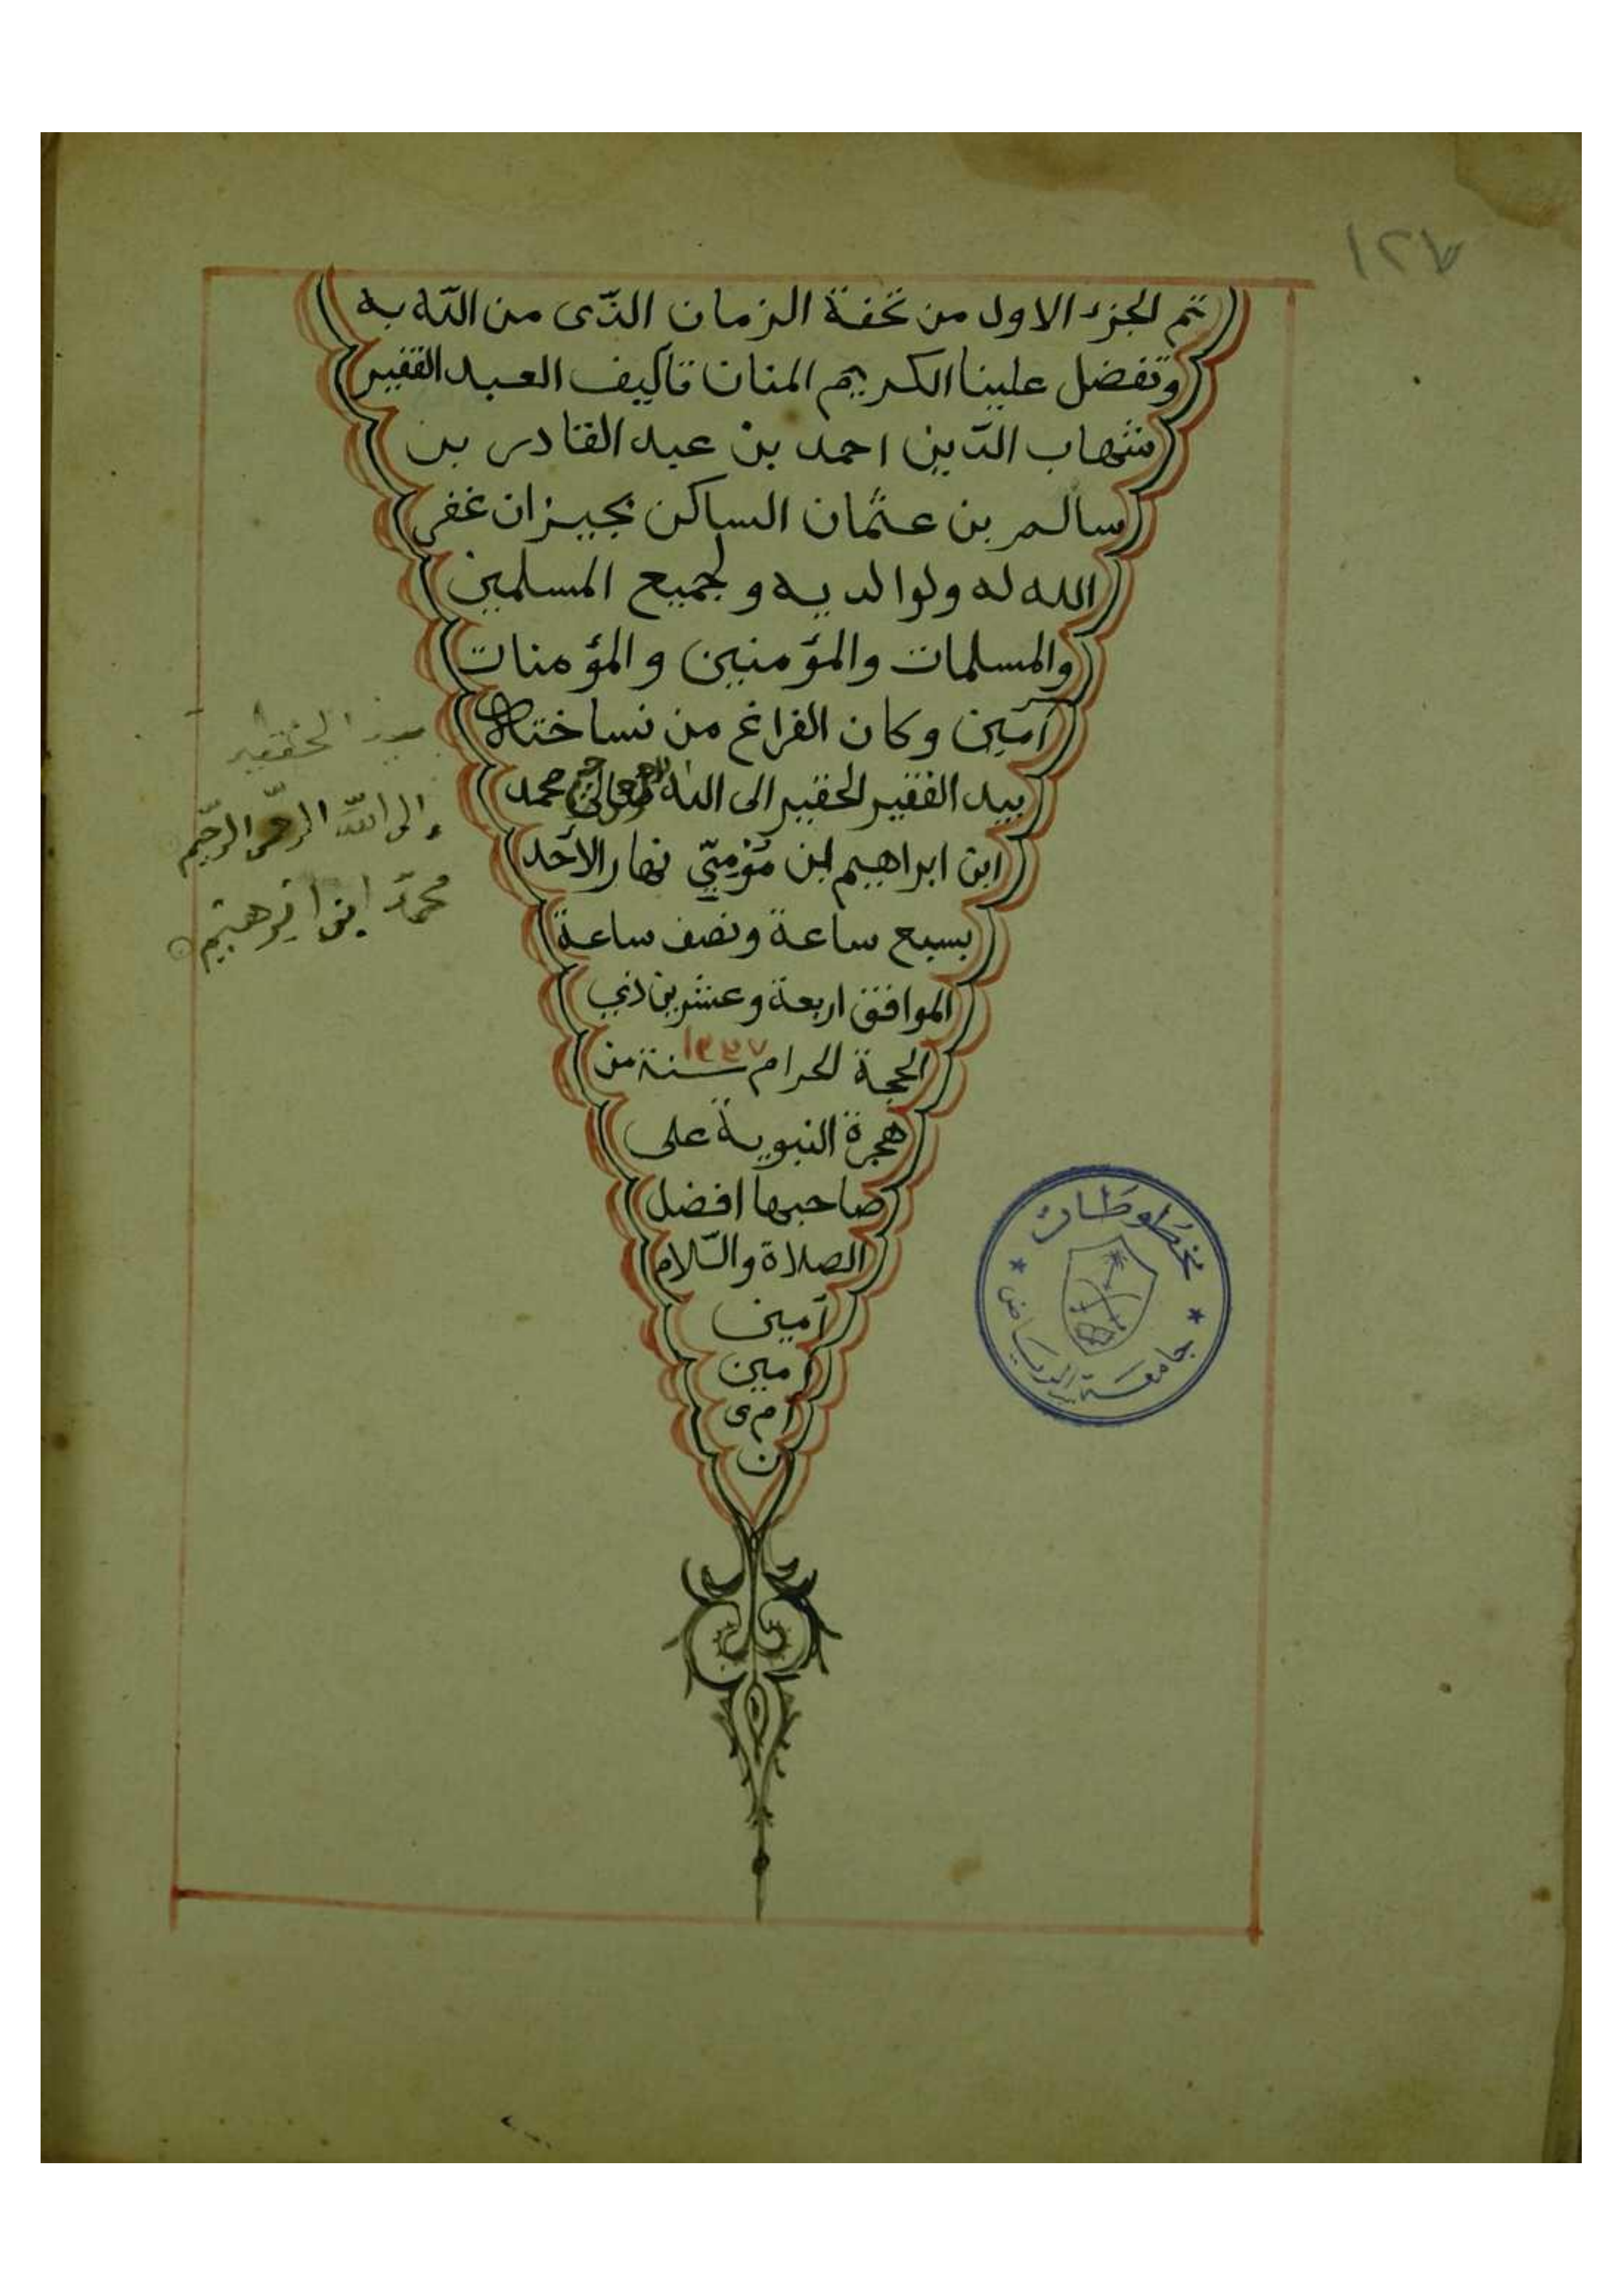 ١٢٧
تم الجزء الاول من تحفة الزمان الذّى من اللّه به
وتفضل علينا الكريم المنان تأليف العبد الفقير
شهاب الدّين احمد بن عبد القادر بن
سالم بن عثمان الساكن بجيزان غفر
الله له ولوالديه ولجميع المسلمين
والمسلمات والمؤمنين والمؤمنات
آمين وكان الفراغ من نساختاه
بيد الفقير الحقير الى الله محمد
ابن ابراهيم ابن مؤمنّ نهار الأحد
بسبع ساعة ونصف ساعة
الموافق اربعة وعشرين ذي
الحجة الحرام سنة من
هجرة النبوية على
صاحبها افضل
الصلاة والسّلام
آمين
امين
آم ى
ن
الحقير
الى اللّه الرحمن الرحيم
محمّد ابن ابرهيم
مخطوطات
جامعة الرياض